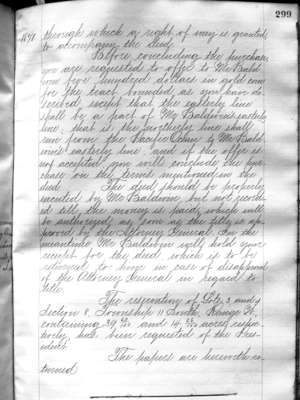 299
1891. through which a right of way is granted
to accompany the deed.
Before concluding the purchase
you are requested to offer to Mr Bald-
win five hundred dollars in gold coin
for the tract bounded, as you have de-
scribed except that the easterly line
shall be a part of Mr Baldwin's easterly
line, that is, the northerly line shall
run from the Pacific Ocean to Mr Bald-
win's easterly line and if the offer is
not accepted you will conclude the pur-
chase on the terms mentioned in the
deed. The deed should be properly
executed by Mr Baldwin, but not record-
ed till the money is paid, which will
be authorized as soon as the title is ap-
proved by the Attorney General. In the
meantime Mr Baldwin will hold your
receipt for the deed which is to be
returned to him in case of disapproval
of the Attorney General in regard to
title.
The reservation of Lots 3 and 4
Section 8, Township 11 South, Range
containing 39 and 14 acres respec-
tively, has been requested of the Pres-
ident.
The papers are herewith re-
turned